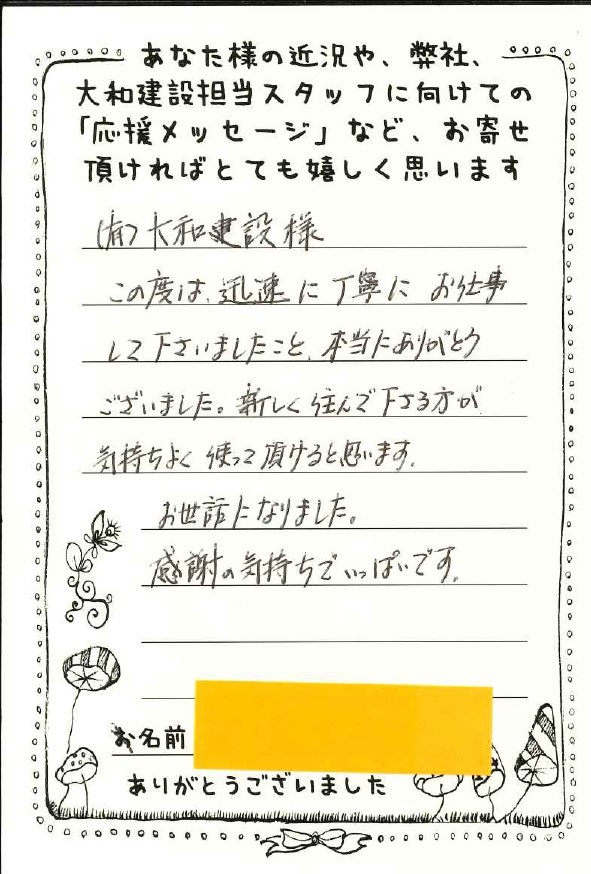 あなた様の近況や、弊社、
大和建設担当スタッフに向けての
「応援メッセージ」など、お寄せ
頂ければとても嬉しく思います
(有)大和建設様
この度は、迅速に丁寧にお仕事
して下さいましたこと、本当にありがとう
ございました。新しく住んで下さる方が
気持ちよく使って頂けると思います。
お世話になりました。
感謝の気持ちでいっぱいです。
お名前
ありがとうございました